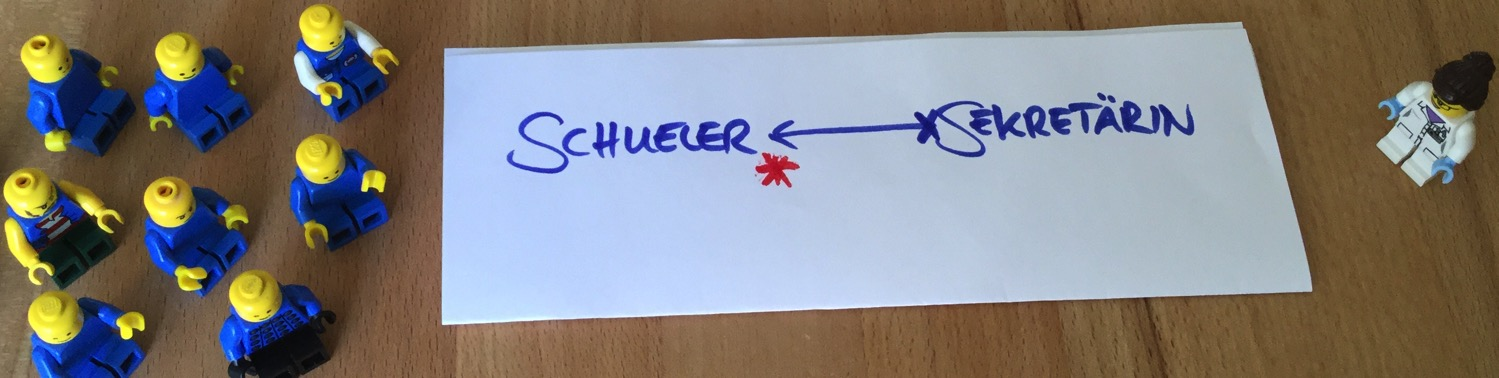 SCHUELER * ← x SEKRETÄRIN